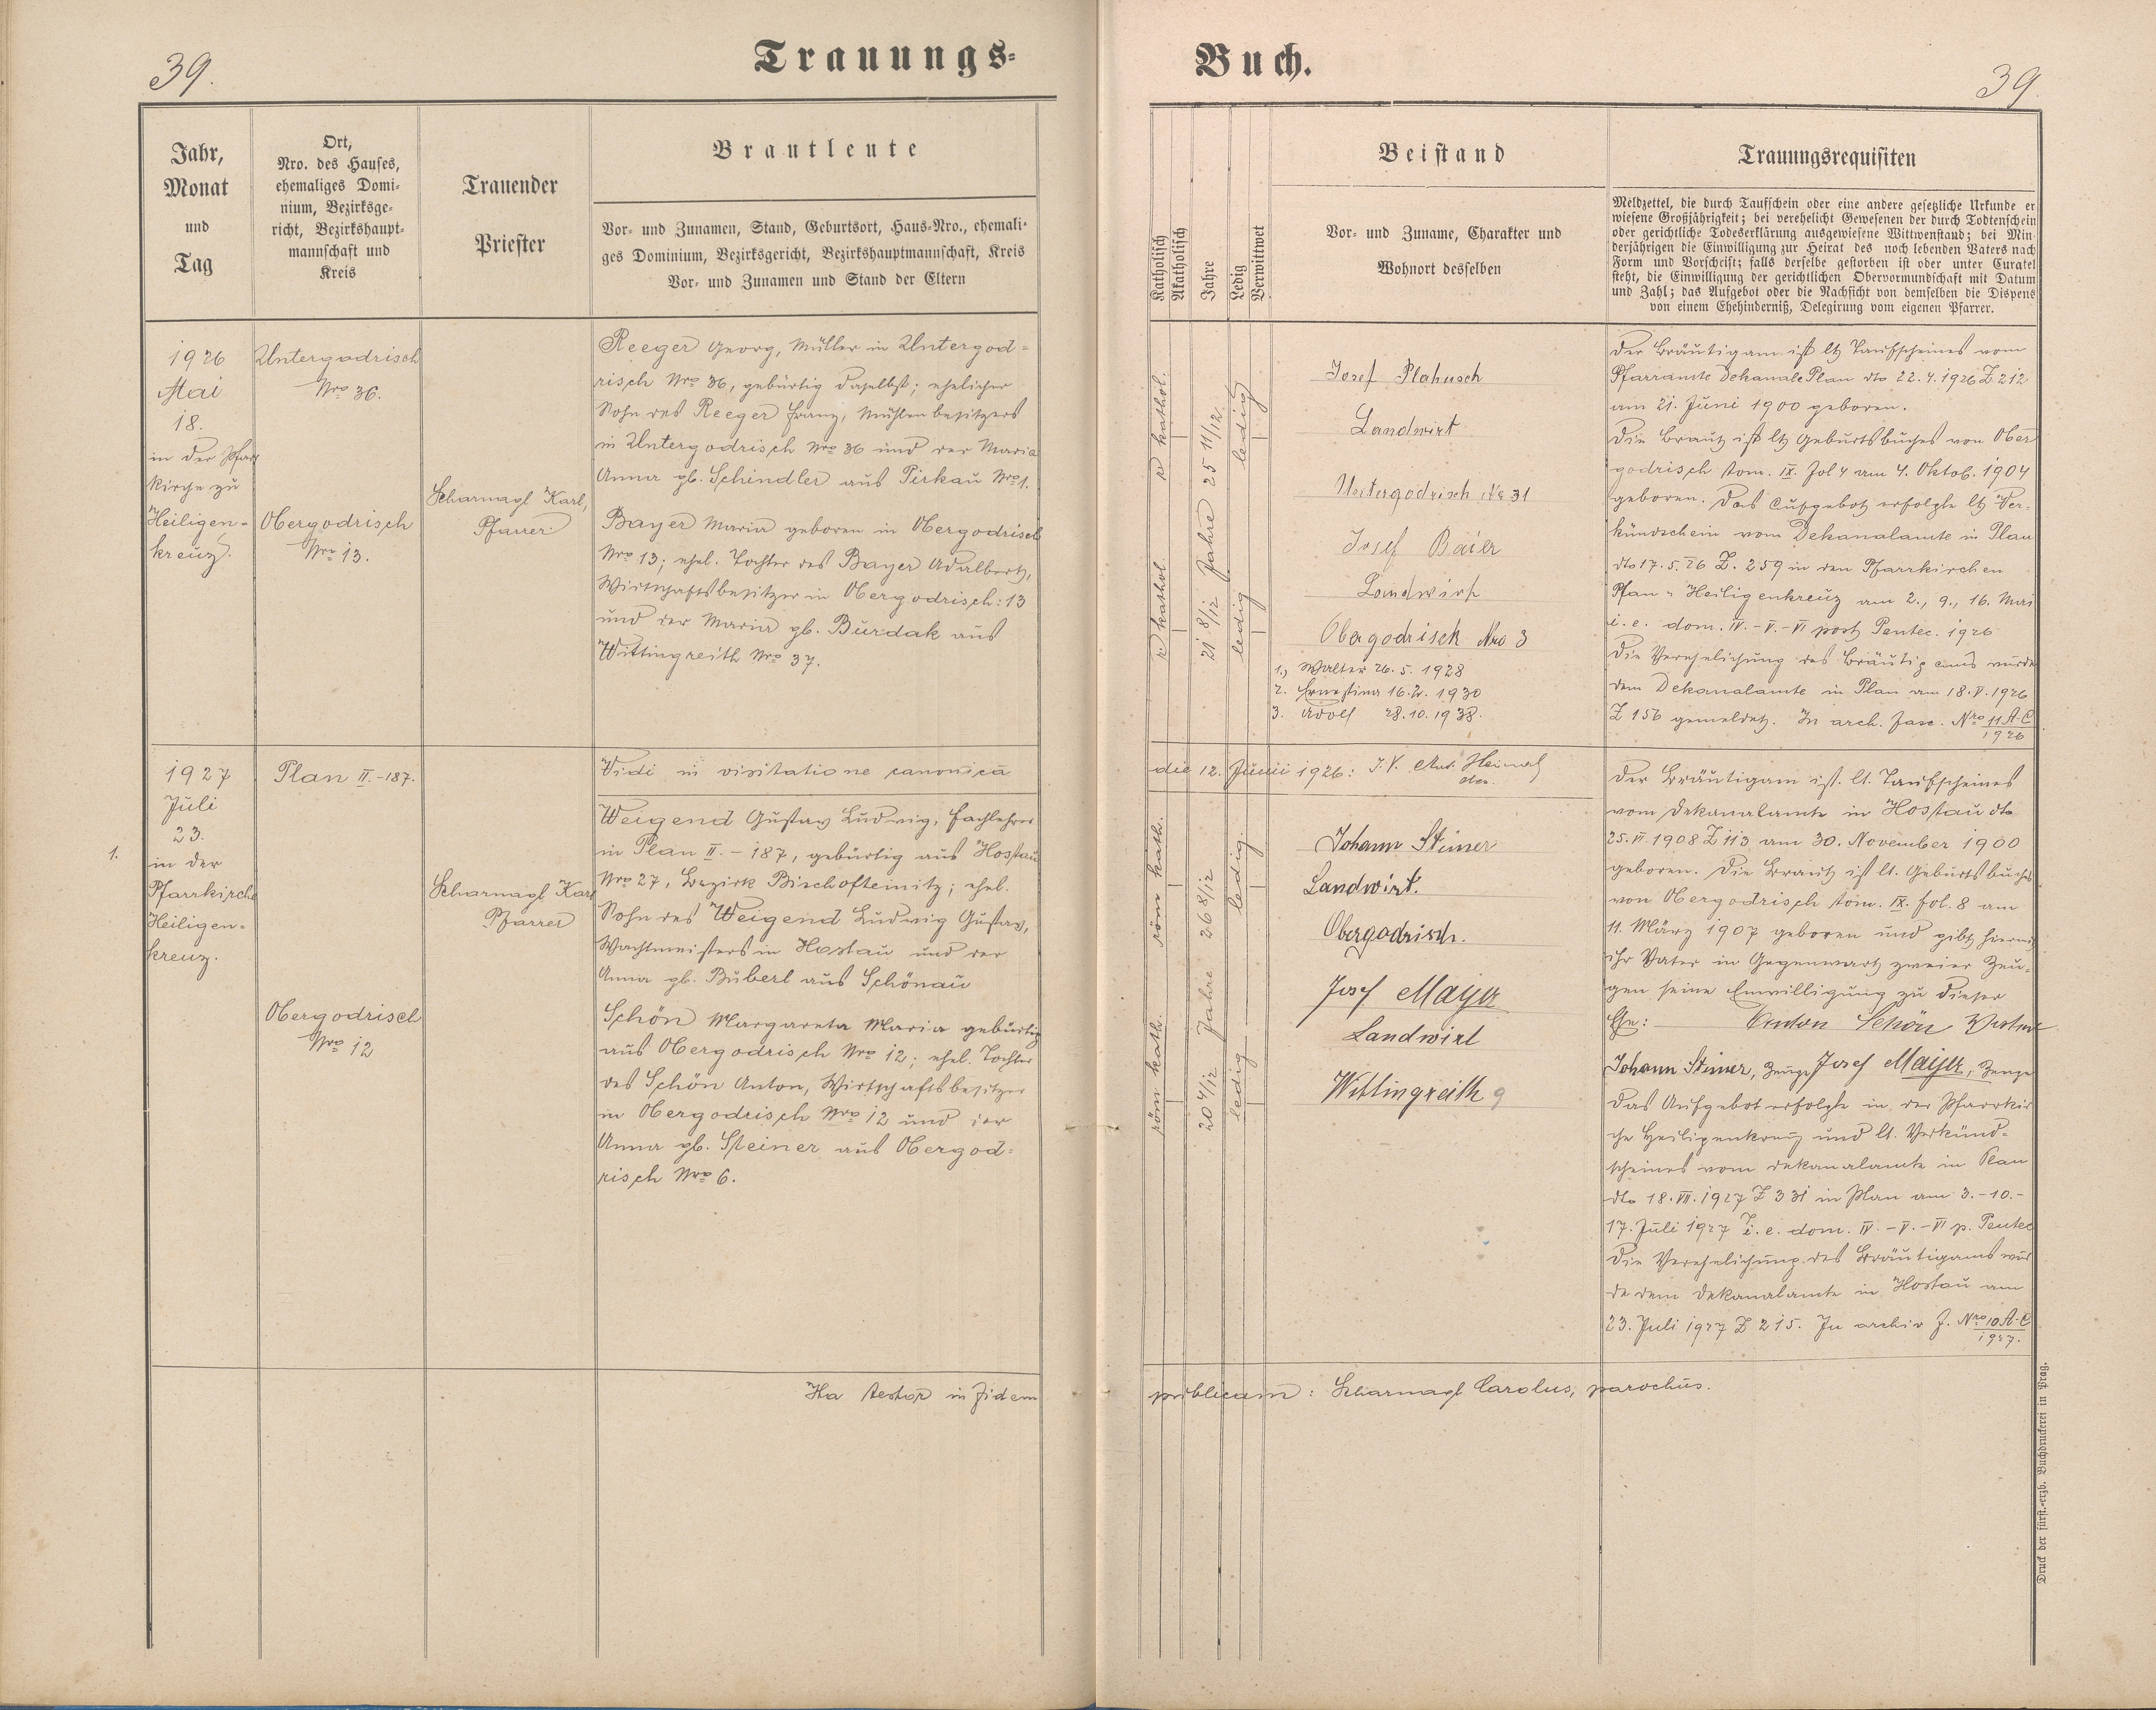 39.
Trauungs-
Jahr,
Monat
und
Tag
Ort,
Nro. des Hauses,
ehemaliges Domi-
nium, Bezirksge-
richt, Bezirkshaupt-
mannschaft und
Kreis
Trauender
Priester
Brautleute
Vor- und Zunamen, Stand, Geburtsort, Haus-Nro., ehemali-
ges Dominium, Bezirksgericht, Bezirkshauptmannschaft, Kreis
Vor- und Zunamen und Stand der Eltern
1926
Mai
18.
in der Pfarr
kirche zu
Heiligen-
kreuz.
Untergodrisch
Nro 36.
Obergodrisch
Nro 13.
Scharnagl Karl,
Pfarrer
Reeger Georg, Müller in Untergod=
risch Nro 36, gebürtig daselbst; ehelicher
Sohn des Reeger Franz, Mühlenbesitzers
in Untergodrisch Nro 36 und der Maria
Anna gb. Schindler aus Pirkau Nro 1.
Bayer Maria geboren in Obergodrisch
Nro 13; ehel. Tochter des Bayer Adalbert,
Wirtschaftsbesitzer in Obergodrisch: 13
und der Maria gb. Burdak aus
Wittingreith Nro 37.
1.
1927
Juli
23.
in der
Pfarrkirche
Heiligen-
kreuz.
Plan II.-187.
Obergodrisch
Nro 12
Scharnagl Karl
Pfarrer
Vidi in visitatione canonica
Weigend Gustav Ludwig, Fachlehrer
in Plan II. - 187, gebürtig aus Hostau
Nro 27, Bezirk Bischofteinitz; ehel.
Sohn des Weigend Ludwig Gustav,
Wachtmeisters in Hostau und der
Anna gb. Buberl aus Schönau
Schön Margareta Maria gebürtig
aus Obergodrisch Nro 12; ehel. Tochter
des Schön Anton, Wirtschaftsbesitzer
in Obergodrisch Nro 12 und der
Anna gb. Steiner aus Obergod=
risch Nro 6.
Ita testor in fidem
Buch.
39
Katholisch
Akatholisch
Jahre
Ledig
Verwittwet
Beistand
Vor- und Zuname, Charakter und
Wohnort desselben
Trauungsrequisiten
Meldzettel, die durch Taufschein oder eine andere gesetzliche Urkunde er
wiesene Großjährigkeit; bei verehelicht Gewesenen der durch Todtenschein
oder gerichtliche Todeserklärung ausgewiesene Wittwenstand; bei Min-
derjährigen die Einwilligung zur Heirat des noch lebenden Vaters nach
Form und Vorschrift; falls derselbe gestorben ist oder unter Curatel
steht, die Einwilligung der gerichtlichen Obervormundschaft mit Datum
und Zahl; das Aufgebot oder die Nachsicht von demselben die Dispens
von einem Ehehinderniß, Delegirung vom eigenen Pfarrer.
r kathol.
r kathol.
25 11/12
21 8/12 Jahre
ledig
ledig
Josef Plahusch
Landwirt
Untergodrisch No 31
Josef Baier
Landwirt
Obergodrisch Nro 3
1., Walter 26. 5. 1928
2. Ernestina 16. 2. 1930
3. Adolf 28. 10. 1938.
Der Bräutigam ist lt Taufscheines vom
Pfarramte Dekanale Plan dto 22. 4. 1926 Z 212
am 21. Juni 1900 geboren.
Die Braut ist lt Geburtsbuches von Ober
godrisch tom. IX. Fol 4 am 4. Oktob. 1904
geboren. Das Aufgebot erfolgte lt Ver-
kündschein vom Dekanalamte in Plan
dto 17. 5. 26 Z. 259 in den Pfarrkirchen
Plan u Heiligenkreuz am 2., 9., 16. Mai
i. e. dom. IV. - V. - VI post Pentec. 1926
Die Verehelichung des Bräutigams wurde
dem Dekanalamte in Plan am 18. V. 1926
Z 156 gemeldet. In arch. fasc. Nro 11 A-C
1926
die 12. Junii 1926: I. V. Ant. Heimerl
dec.
röm kath.
röm kath.
26 8/12
20 4/12 Jahre
ledig
ledig
Johann Steiner
Landwirt.
Obergodrisch.
Josef Mayer
Landwirt
Wittingreith 9
Der Bräutigam ist lt. Taufscheines
vom Dekanalamte in Hostau dto
25. VI. 1908 Z 113 am 30. November 1900
geboren. Die Braut ist lt. Geburtsbuches
von Obergodrisch tom. IX. fol. 8 am
11. März 1907 geboren und gibt hiermit
ihr Vater in Gegenwart zweier Zeu-
gen seine Einwilligung zu dieser
Ehe: Anton Schön Vater
Johann Steiner, Zeuge Josef Mayer, Zeuge
Das Aufgebot erfolgte in der Pfarrkir
che Heiligenkreuz und lt. Verkünd-
scheines vom Dekanalamte in Plan
dto 18. VII. 1927 Z 331 in Plan am 3. - 10. -
17. Juli 1927 i. e. dom. IV. - V. - VI p. Pentec
Die Verehelichung des Bräutigams wur
de dem Dekanalamte in Hostau am
23. Juli 1927 Z 215. In archiv f. Nro 10 A-C
1927.
publicam: Scharnagl Carolus, parochus.
Druck der fürst.-erzb. Buchdruckerei in Prag.